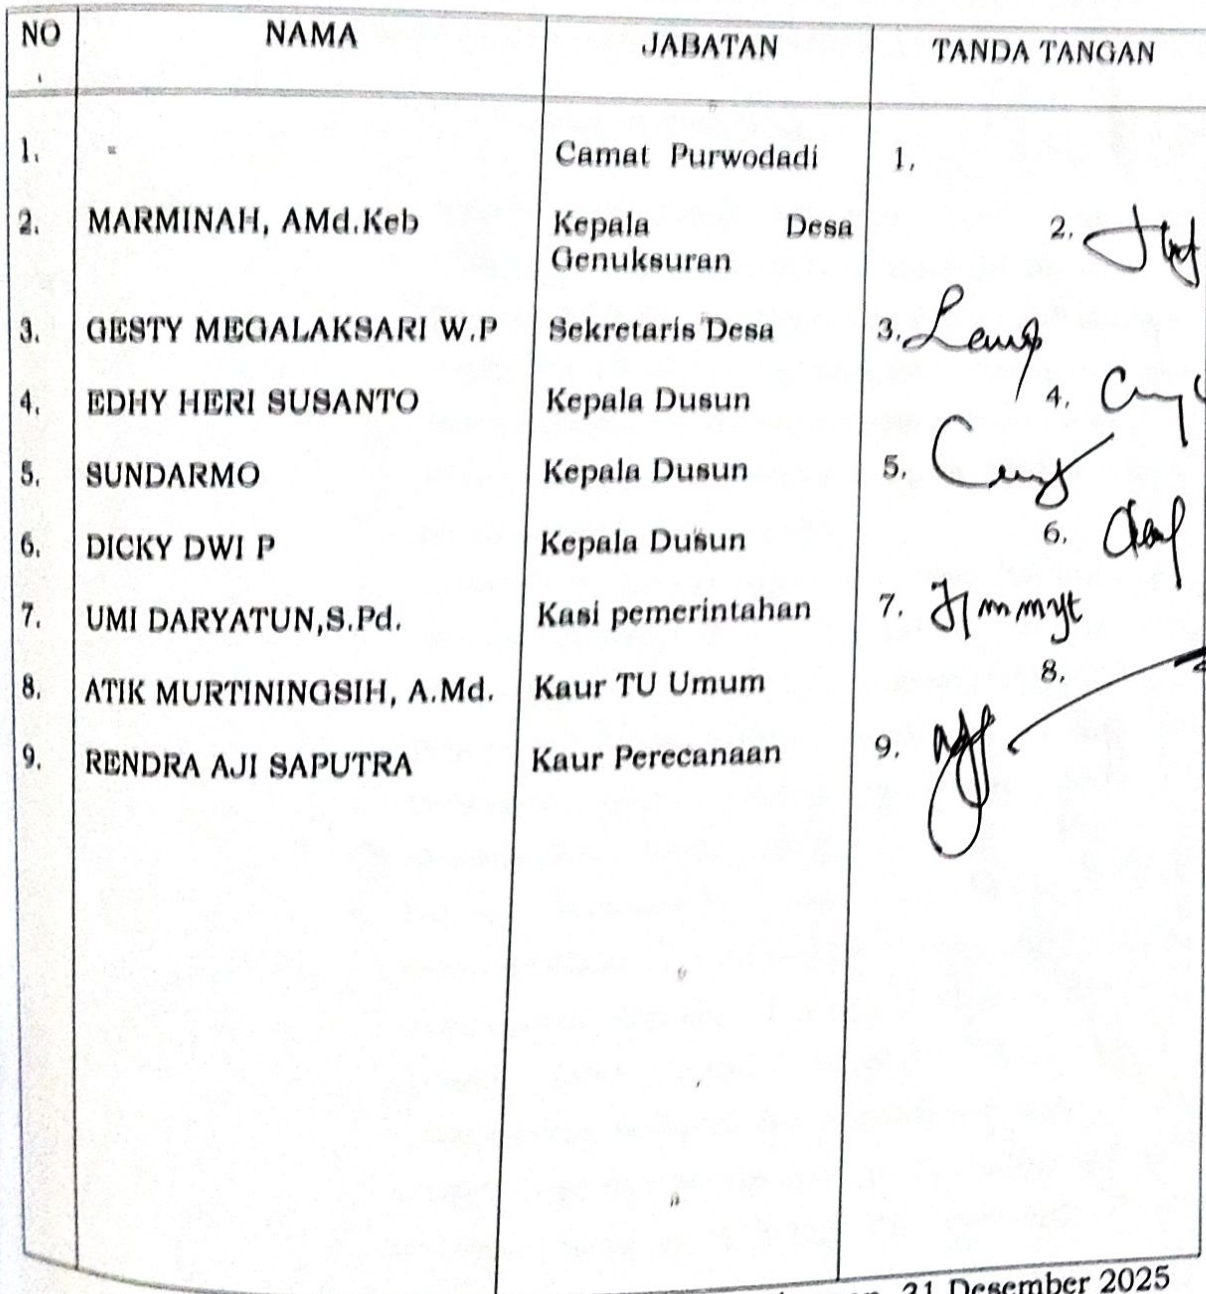 NO NAMA JABATAN TANDA TANGAN
1. Camat Purwodadi 1.
2. MARMINAH, AMd.Keb Kepala Desa 2.
Genuksuran
3. GESTY MEGALAKSARI W.P Sekretaris Desa 3.
4. EDHY HERI SUSANTO Kepala Dusun 4.
5. SUNDARMO Kepala Dusun 5.
6. DICKY DWI P Kepala Dusun 6.
7. UMI DARYATUN,S.Pd. Kasi pemerintahan 7.
8. ATIK MURTININGSIH, A.Md. Kaur TU Umum 8.
9. RENDRA AJI SAPUTRA Kaur Perecanaan 9.
21 Desember 2025